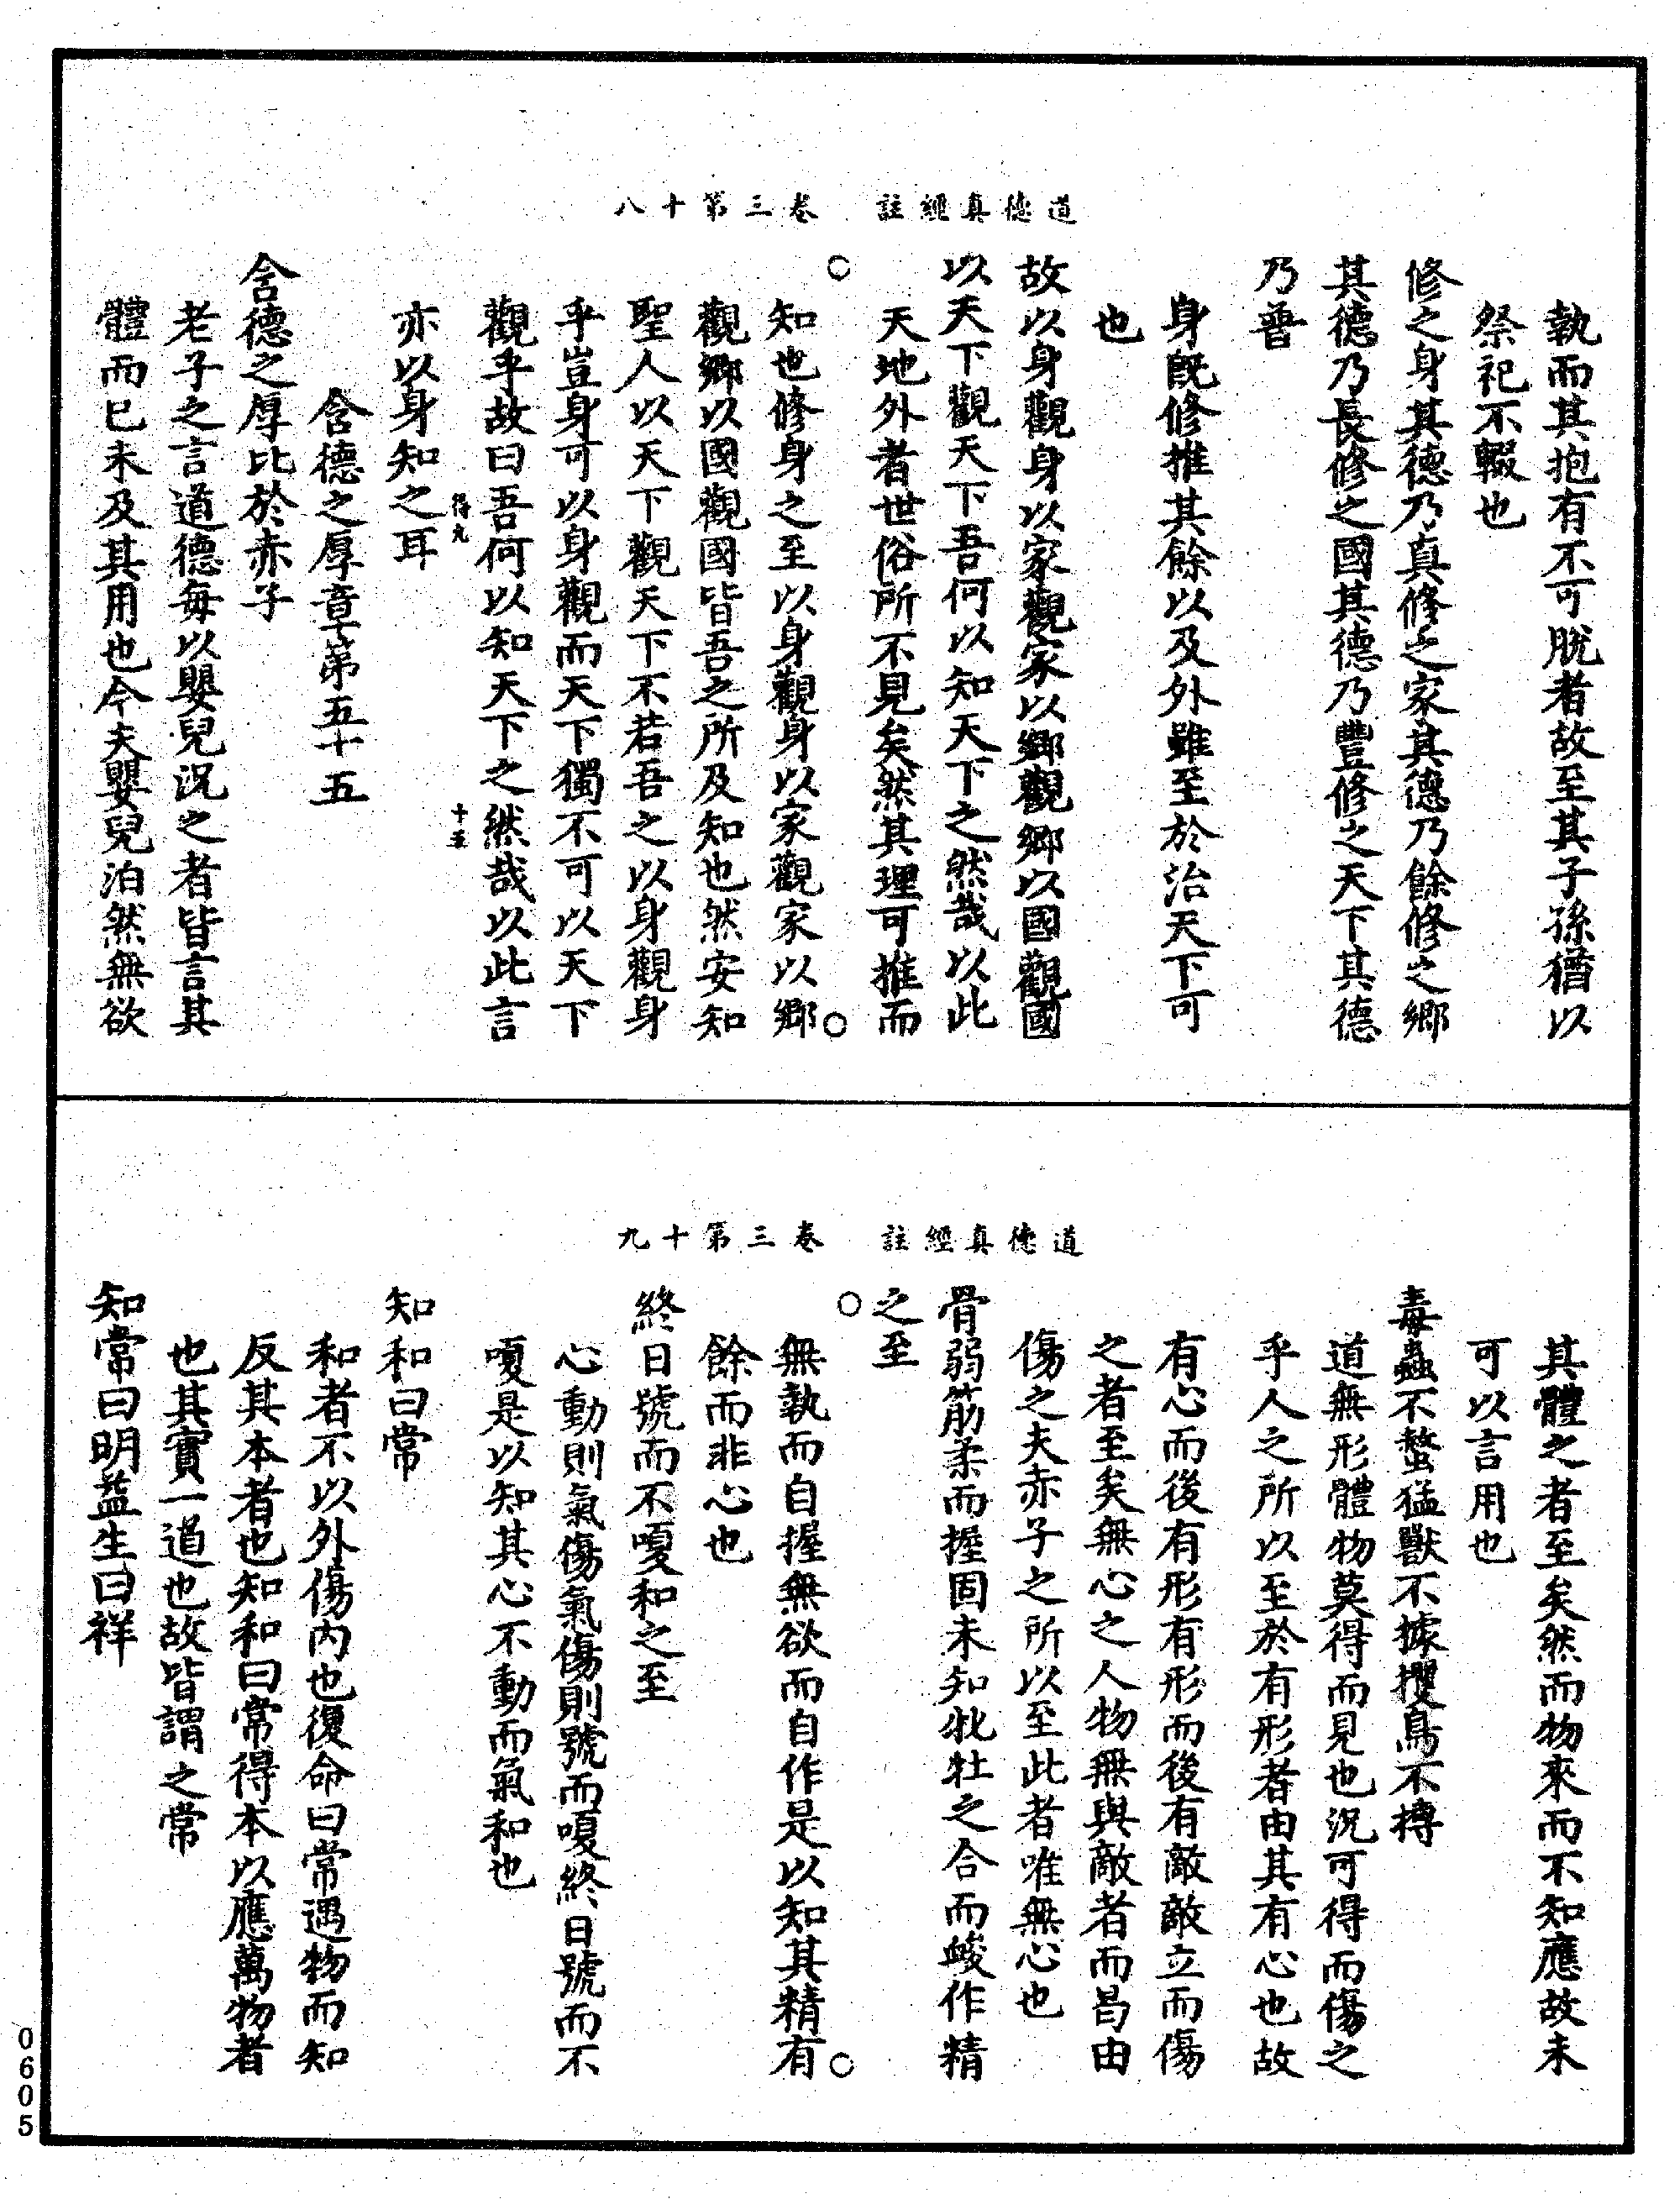 道德真經註　卷三第十八
執而其抱有不可脫者故至其子孫猶以
祭祀不輟也
修之身其德乃真修之家其德乃餘修之鄉
其德乃長修之國其德乃豐修之天下其德
乃普
身既修推其餘以及外雖至於治天下可
也
故以身觀身以家觀家以鄉觀鄉以國觀國
以天下觀天下吾何以知天下之然哉以此
天地外者世俗所不見矣然其理可推而
知也修身之至以身觀身以家觀家以鄉
觀鄉以國觀國皆吾之所及知也然安知
聖人以天下觀天下不若吾之以身觀身
乎豈身可以身觀而天下獨不可以天下
觀乎故曰吾何以知天下之然哉以此言
十五
亦以身知之耳
含德之厚章第五十五
含德之厚比於赤子
老子之言道德每以嬰兒況之者皆言其
體而已未及其用也今夫嬰兒泊然無欲
道德真經註　卷三第十九
其體之者至矣然而物來而不知應故未
可以言用也
毒蟲不螫猛獸不據攫鳥不搏
道無形體物莫得而見也況可得而傷之
乎人之所以至於有形者由其有心也故
有心而後有形有形而後有敵敵立而傷
之者至矣無心之人物無與敵者而曷由
傷之夫赤子之所以至此者唯無心也
骨弱筋柔而握固未知牝牡之合而峻作精
之至
無執而自握無欲而自作是以知其精有
餘而非心也
終日號而不嗄和之至
心動則氣傷氣傷則號而嗄終日號而不
嗄是以知其心不動而氣和也
知和曰常
和者不以外傷內也復命曰常遇物而知
反其本者也知和曰常得本以應萬物者
也其實一道也故皆謂之常
知常曰明益生曰祥
0605